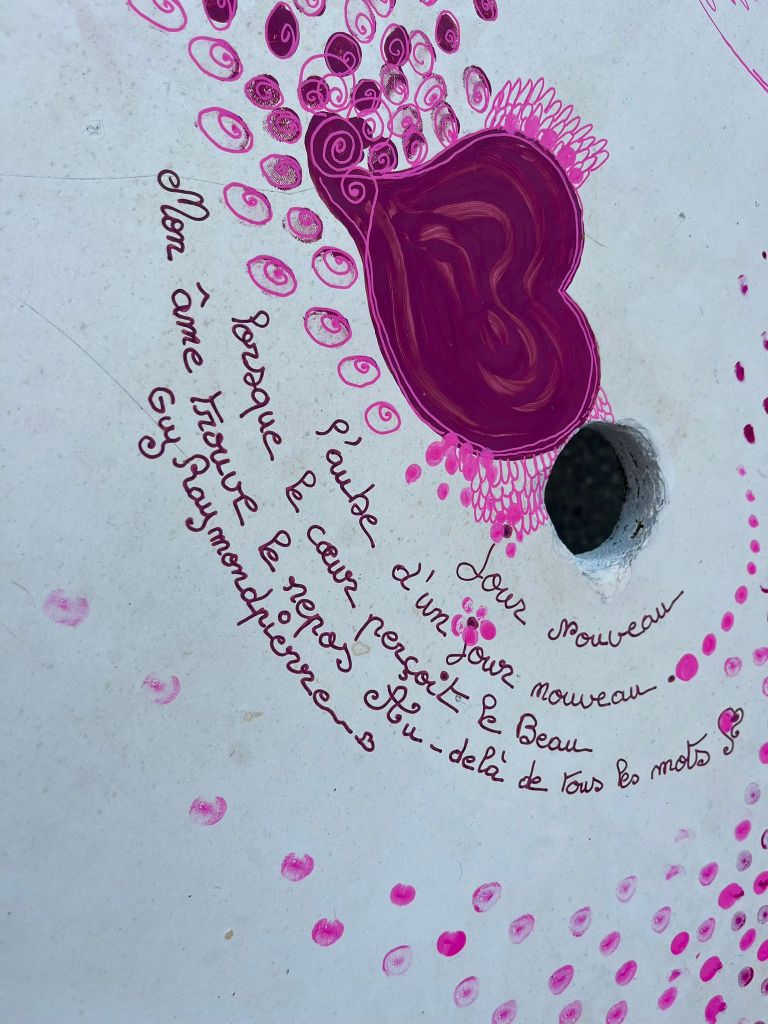 Jour nouveau
l'aube d'un jour nouveau.
lorsque le cœur perçoit le Beau
Mon âme trouve le repos Au-delà de tous les mots
Guy Raymondpierre